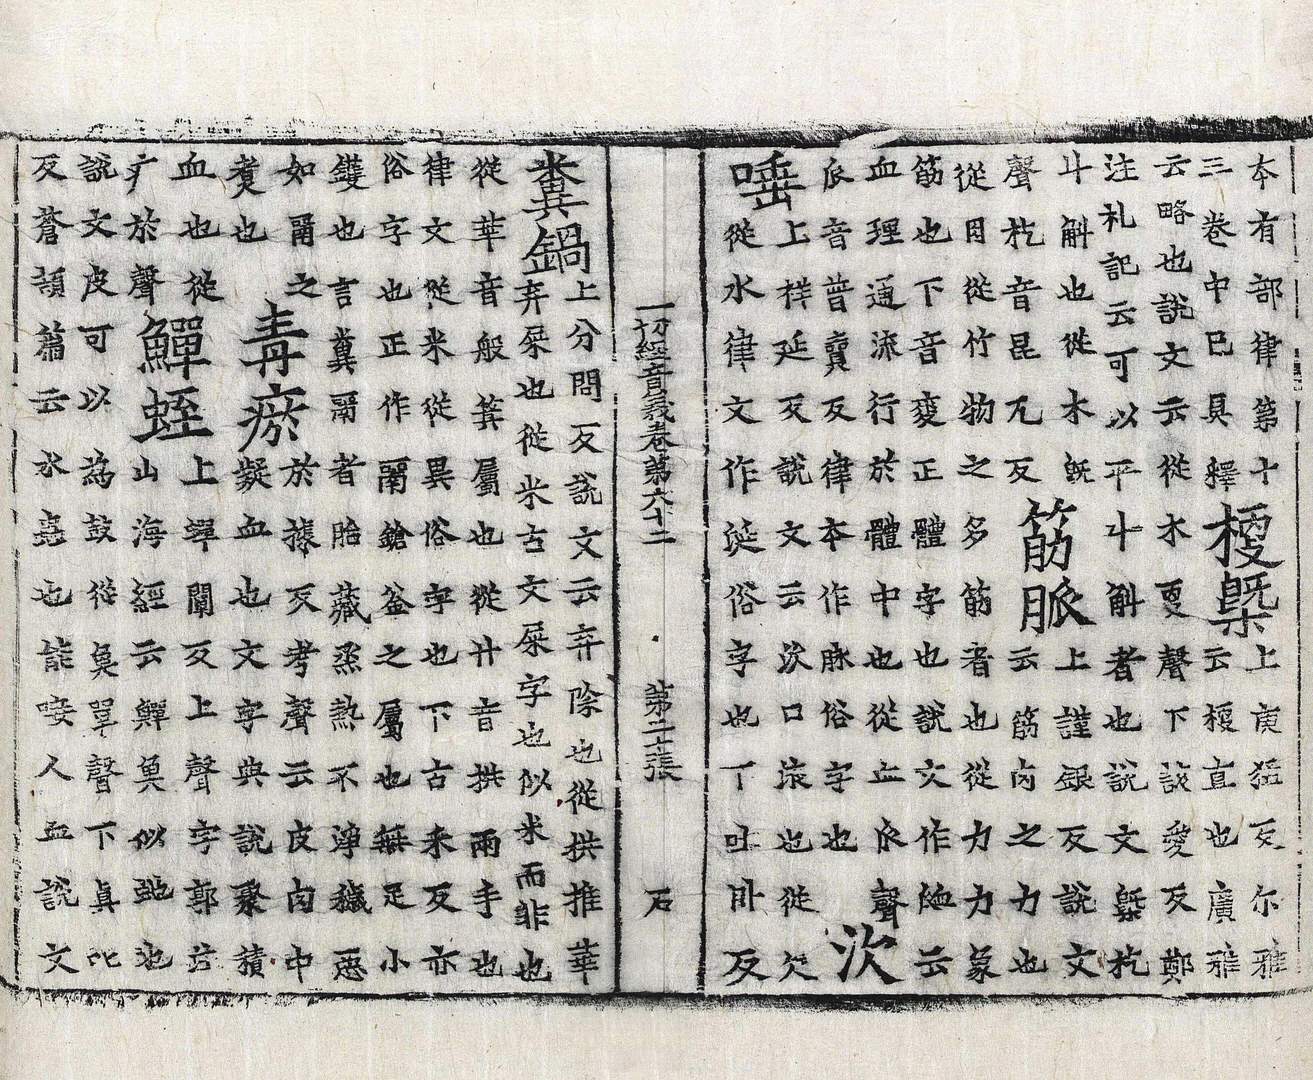 本有部律第十
三卷中已具釋
梗槩
上庚猛反尔雅
云梗直也廣雅
云略也說文云從木更聲下該愛反鄭
注礼記云可以平斗斛者也說文槩杚
斗斛也從木既
聲杚音昆兀反
筋脈
上謹銀反說文
云筋肉之力也
從肉從竹物之多筋者也從力力象
筋也下音麥正體字也說文作衇云
血理通流行於體中也從血𠂢聲
𠂢音普賣反律本作脉俗字也
㳄
唾
上祥延反說文云㳄口液也從欠
從水律文作涎俗字也下吐卧反
一切經音義卷第六十二 第二十張 石
糞鍋
上分問反說文云弃除也從拱推華
弃屎也從米古文屎字也似米而非也
從華音般箕屬也從廾音拱兩手也
律文從米從異俗字也下古禾反亦
俗字也正作鬲鎗釜之屬也無足小
鑊也言糞鬲者胎藏蒸熱不淨穢惡
如鬲之
煑也
毒瘀
於據反考聲云皮肉中
凝血也文字典說聚積
血也從
疒於聲
鱓蛭
上蟬闡反上聲字郭註
山海經云鱓魚似虵也
說文皮可以為鼓從魚單聲下真
反蒼頡篇云水蟲也能唼人血說文